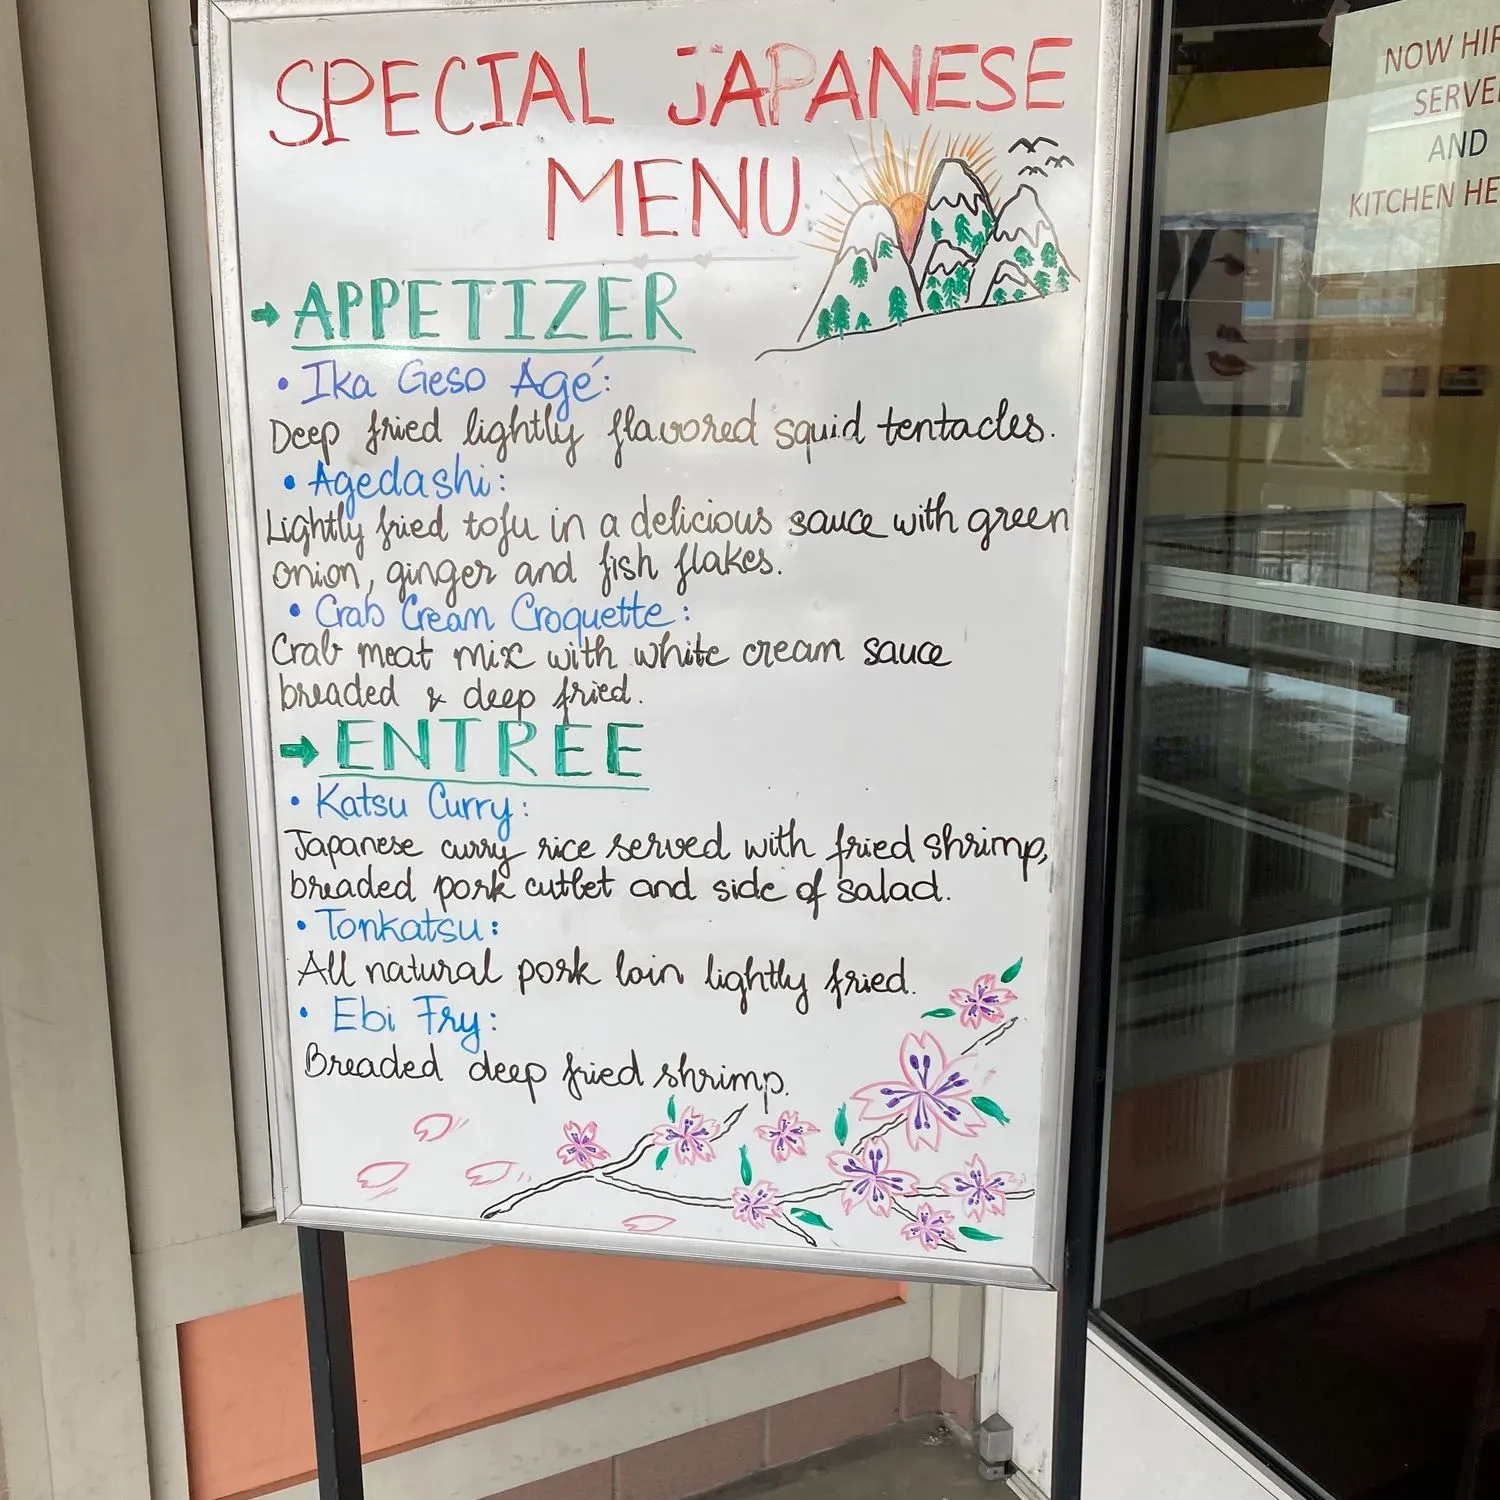 SPECIAL JAPANESE
MENU
APPETIZER
• Ika Geso Agé:
Deep fried lightly flavored squid tentacles.
• Agedashi:
Lightly fried tofu in a delicious sauce with green
onion, ginger and fish flakes.
• Crab Cream Croquette:
Crab meat mix with white cream sauce
breaded & deep fried.
ENTREE
• Katsu Curry:
Japanese curry rice served with fried shrimp,
breaded pork cutlet and side of salad.
• Tonkatsu:
All natural pork loin lightly fried.
• Ebi Fry:
Breaded deep fried shrimp.
NOW
AND
KITCHEN